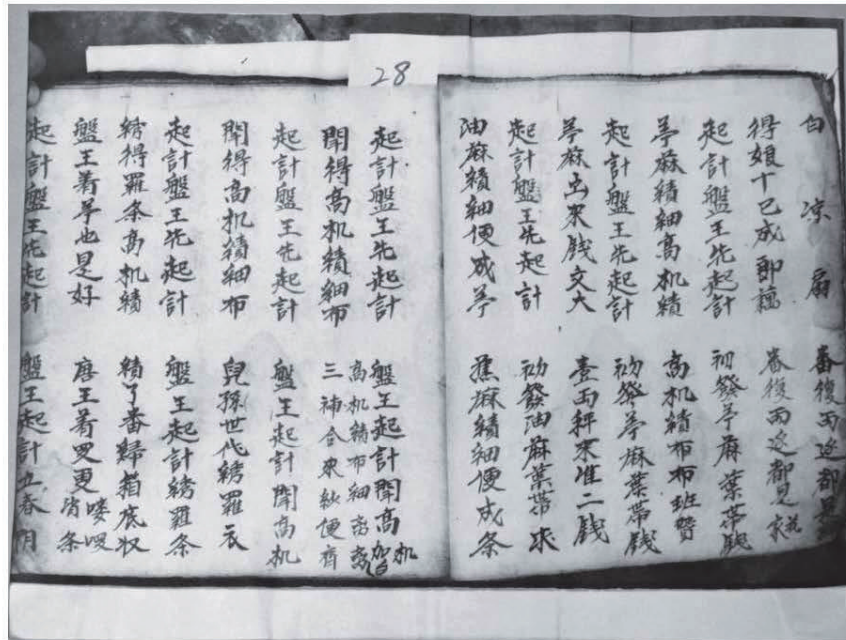 28
白凉扇 番復两边都是
得娘十已成郎 番復两边都是
起計盤王先起計 初發苧麻葉帶
苧麻績細高机績 高机績布布班
起計盤王先起計 初發苧麻葉帶
苧麻出來錢文大 壹两秤來准二錢
起計盤王先起計 初發油麻葉帶
油麻績細便成苧 蕉麻績細便成条
起計盤王先起計 盤王起計閗高机
閗得高机績細布 高机績布細 三補合來
起計盤王先起計 盤王起計閗高机
閗得高机績細布 兒孫世代綉羅衣
起計盤王先起計 盤王起計綉羅条
綉得羅条高机績 績了番歸箱底收
盤王着苧也是好 唐王着 更
起計盤王先起計 盤王起計立春